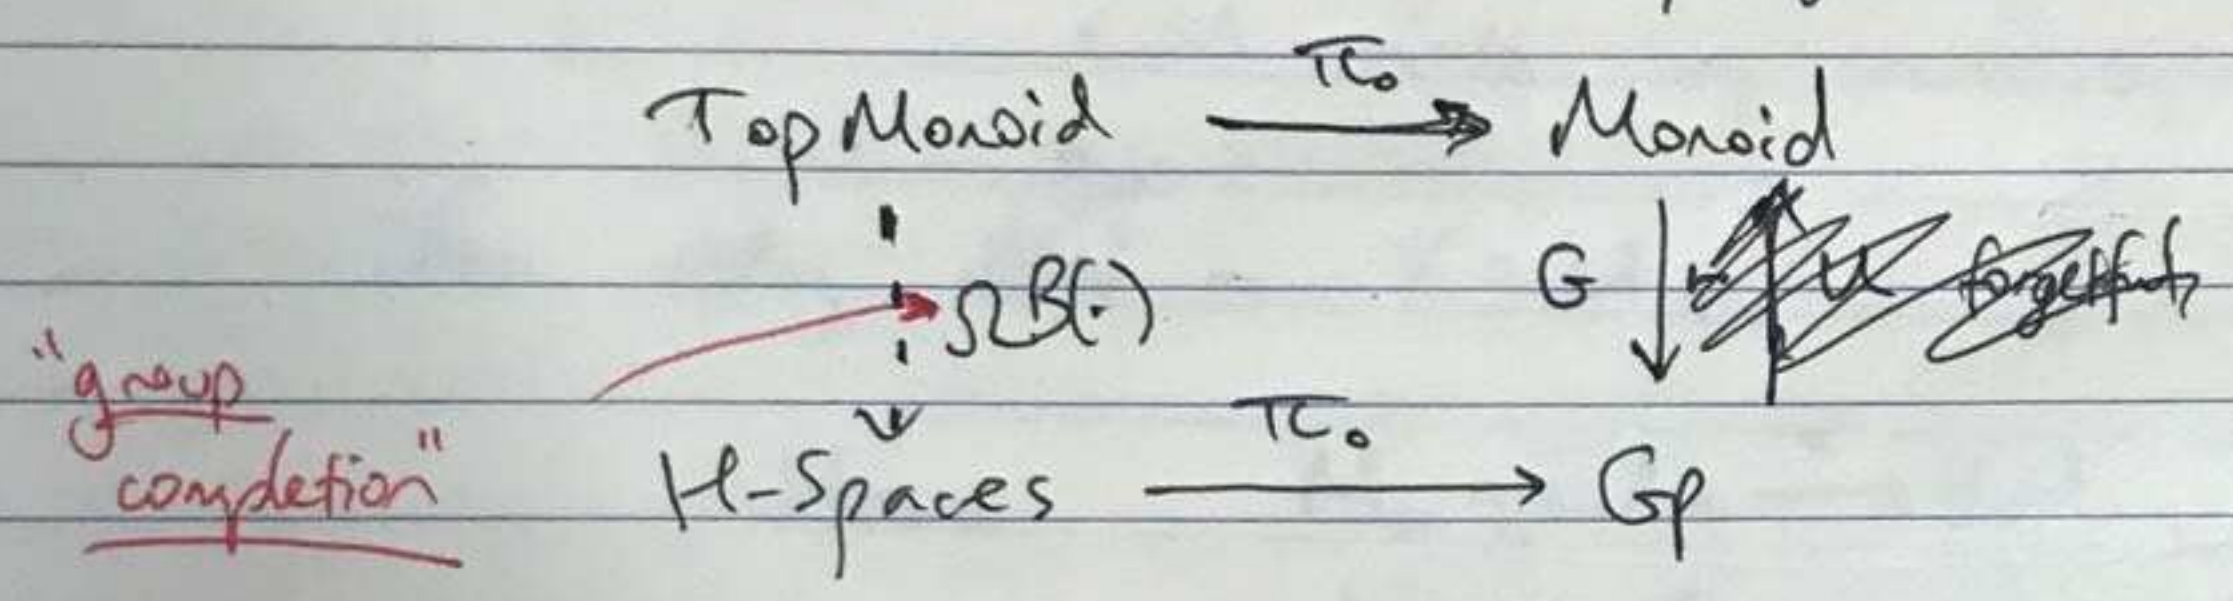 π₀
Top Monoid → Monoid
G ↓ U forgetful
ΩB(·)
"group
completion"
π₀
H-Spaces → Gp